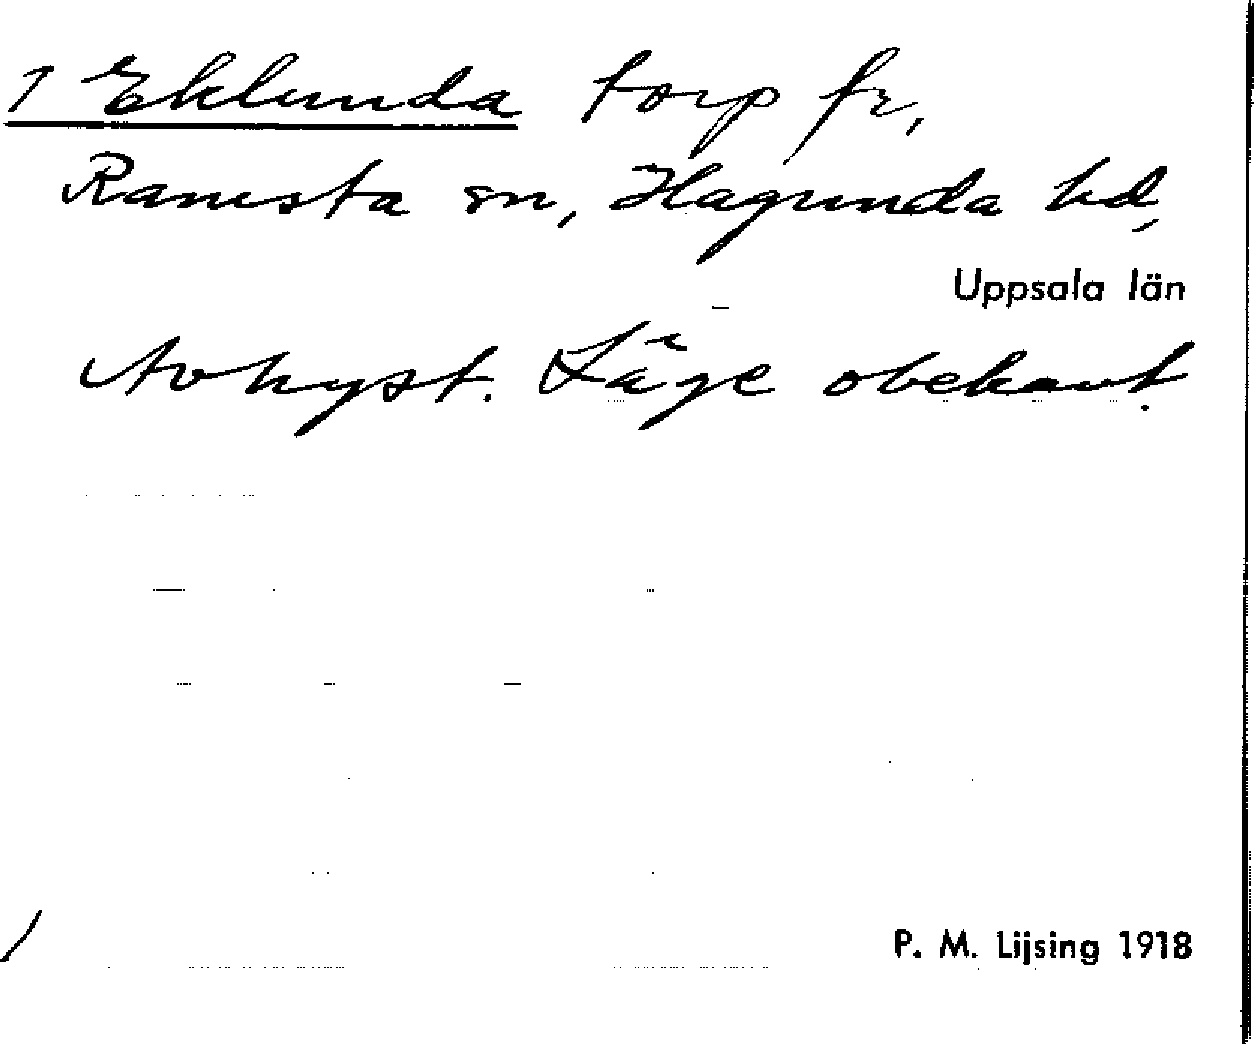 1 Eklunda torp fr,
Ramsta sn, Hagunda hd,
Uppsala län
Avhyst. Läge obekant.
P. M. Lijsing 1918